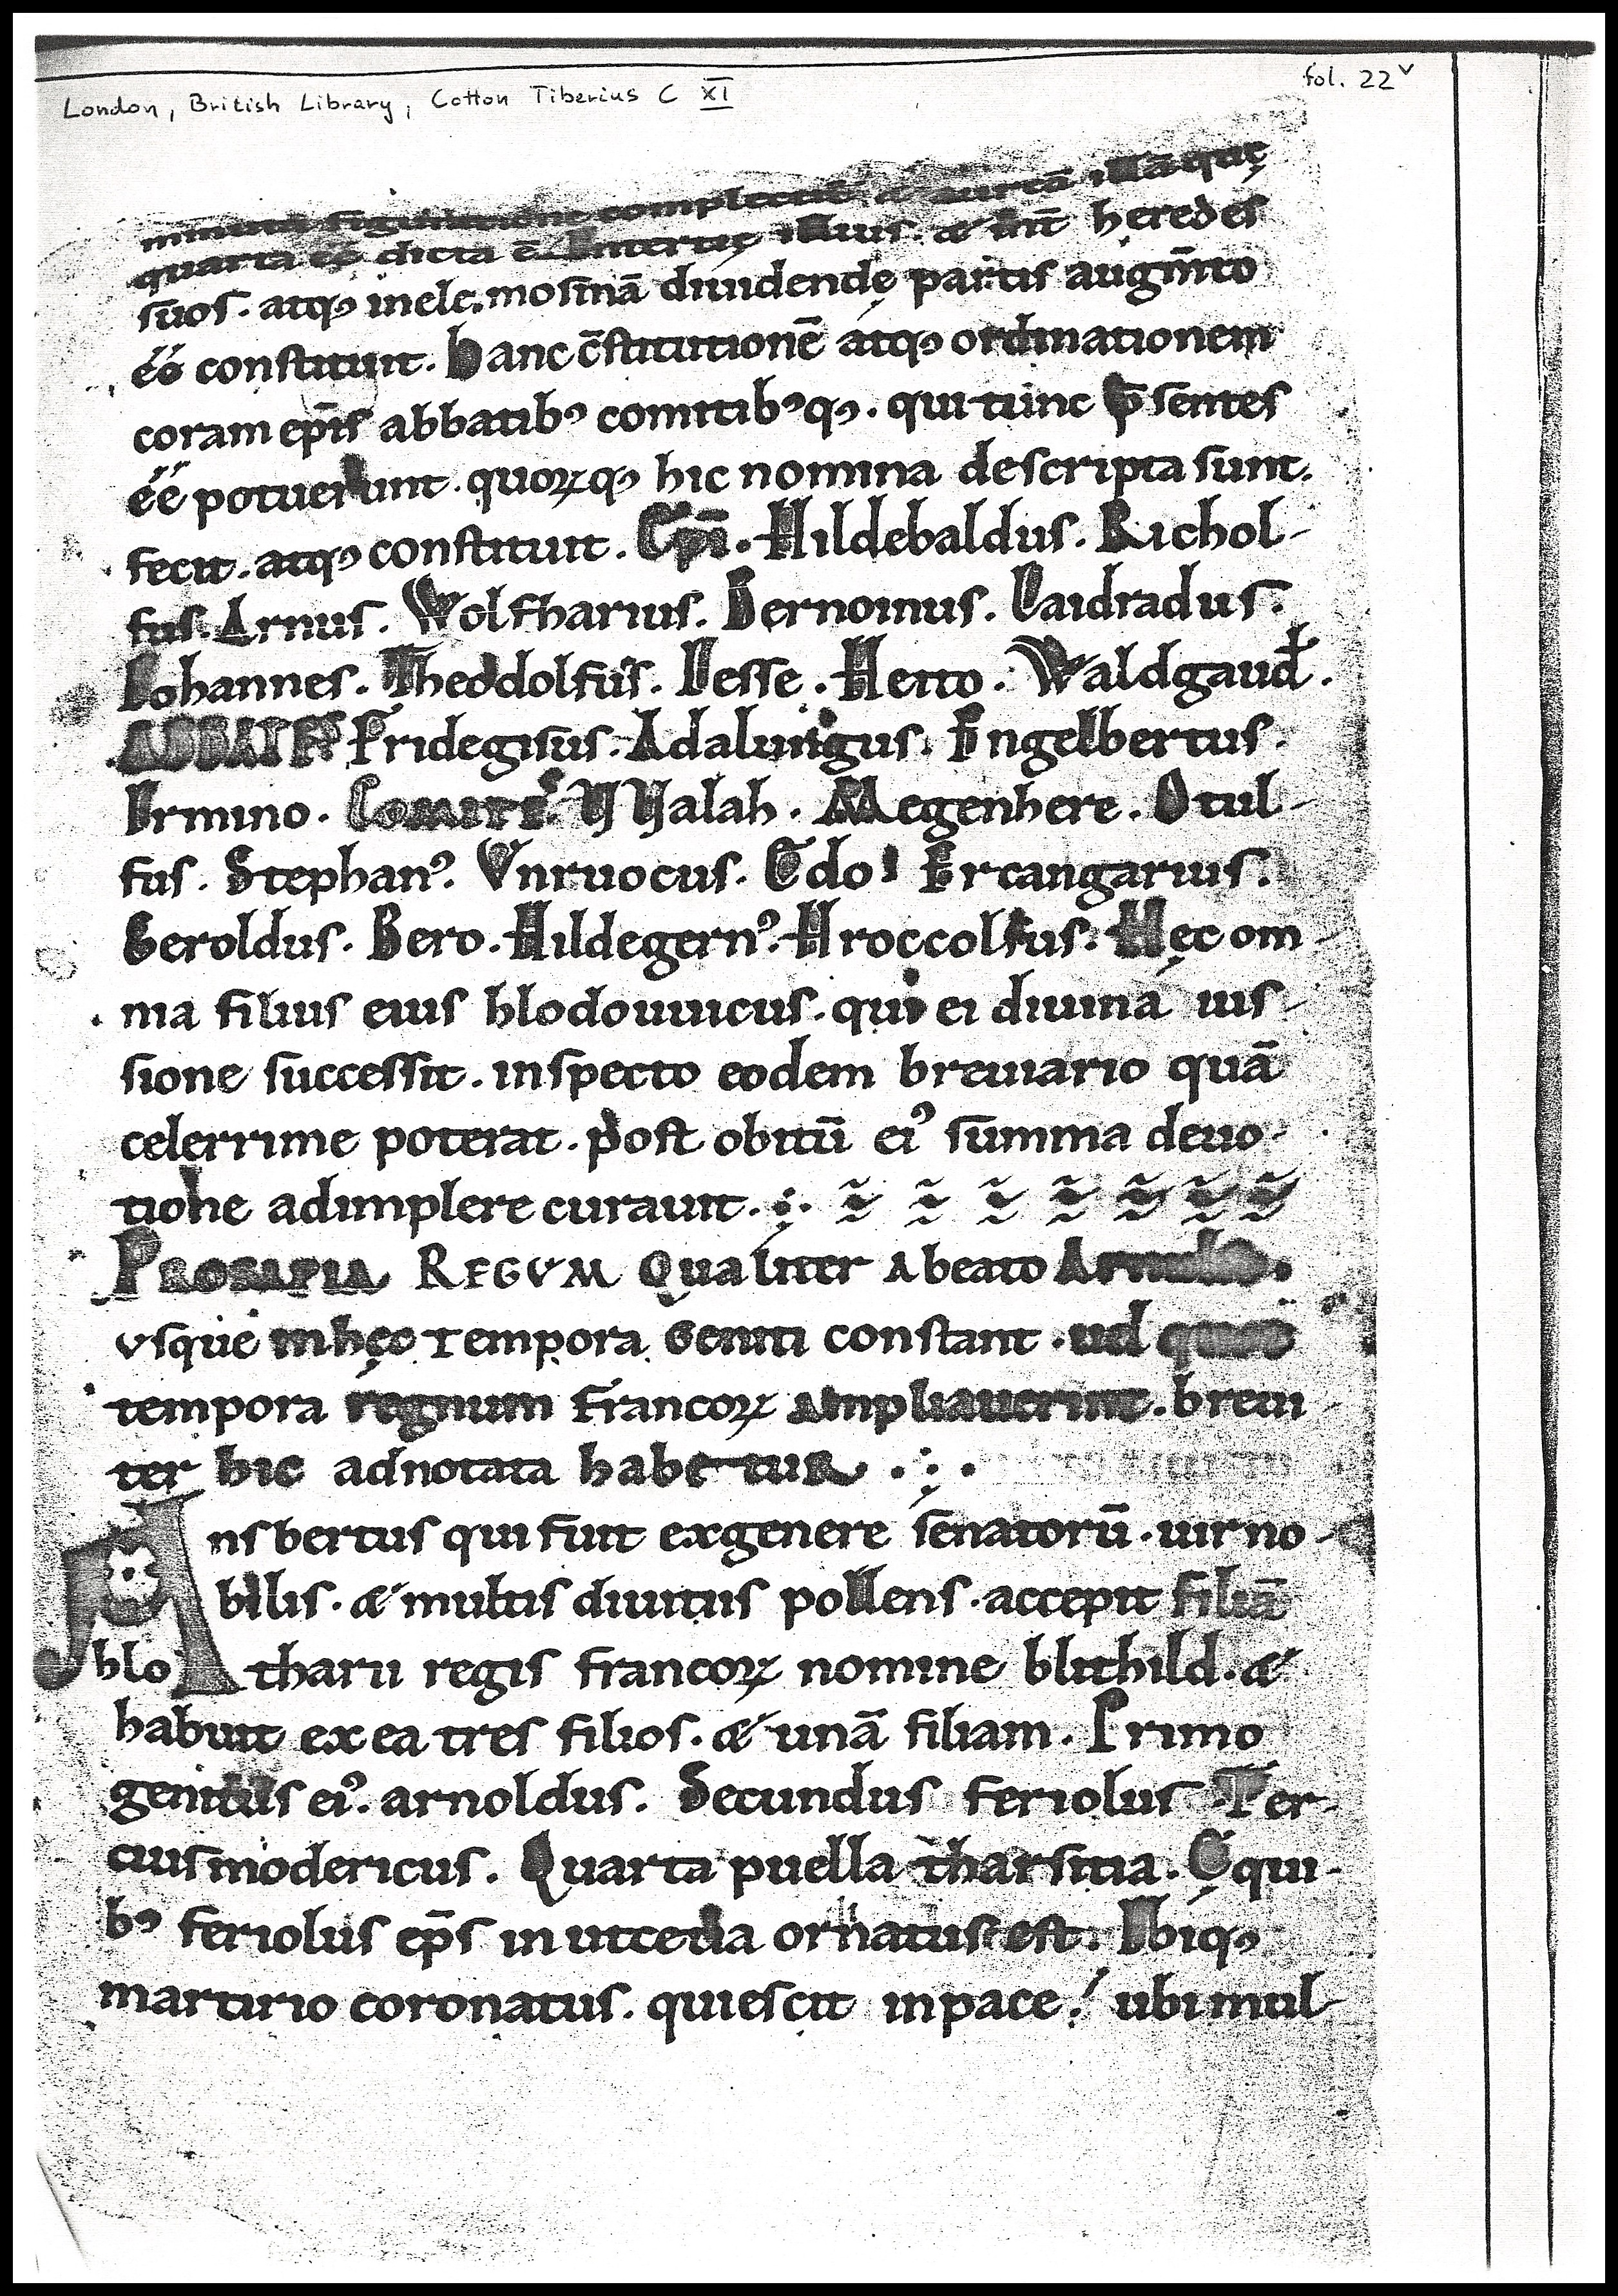 London, British Library, Cotton Tiberius C XI
fol. 22v
minuta figuratione complectit̄. & aureā illā quę
quarta eē dicta ē. Intertię illius. & int̄ heredes
suos. atq; inelemosinā diuidendę partis augm̄to
éé constituit. Hanc c̄stitutionē atq; ordinationem
coram ep̄is abbatib; comitib;q;. qui tunc p̄sentes
éé potuerunt. quorꝝq; hic nomina descripta sunt.
fecit. atq; constituit. Ep̄i. Hildebaldus. Richol-
fus. Arnus. Wolfharius. Bernoinus. Laidradus.
Iohannes. Theddolfus. Iesse. Heito. Waldgaud̄.
ABBATES. Fridegisus. Adalungus. Engelbertus.
Irmino. COMITES. Walah. Megenhere. Otul-
fus. Stephanꝰ. Vnruocus. Edo. Ercangarius.
Geroldus. Bero. Hildegernꝰ. Hroccolfus. Hęc om-
nia filius eius hlodouuicus. qui ei diuina ius-
sione successit. inspecto eodem breuiario quā
celerrime poterat. post obitū eiꝰ summa deuo-
tione adimplere curauit.
PROSAPIA REGVM Qualiter Abeato Arnulfo.
vsque inhęc tempora Geniti constant. ud quae
tempora regnum francoꝝ Ampliauerint. breui
ter hic adnotata habetur
Ansbertus qui fuit exgenere senatorū. uir no-
bilis. & multis diuitiis pollens. accepit filiā
hlotharii regis francoꝝ nomine blithild. &
habuit ex ea tres filios. & unā filiam. Primo
genitus eiꝰ. arnoldus. Secundus feriolus. Ter-
cius modericus. Quarta puella tharsitia. Equi-
b; feriolus ep̄s in utcecia ornatus est. Ibiq;
martirio coronatus. quiescit inpace. ubi mul-